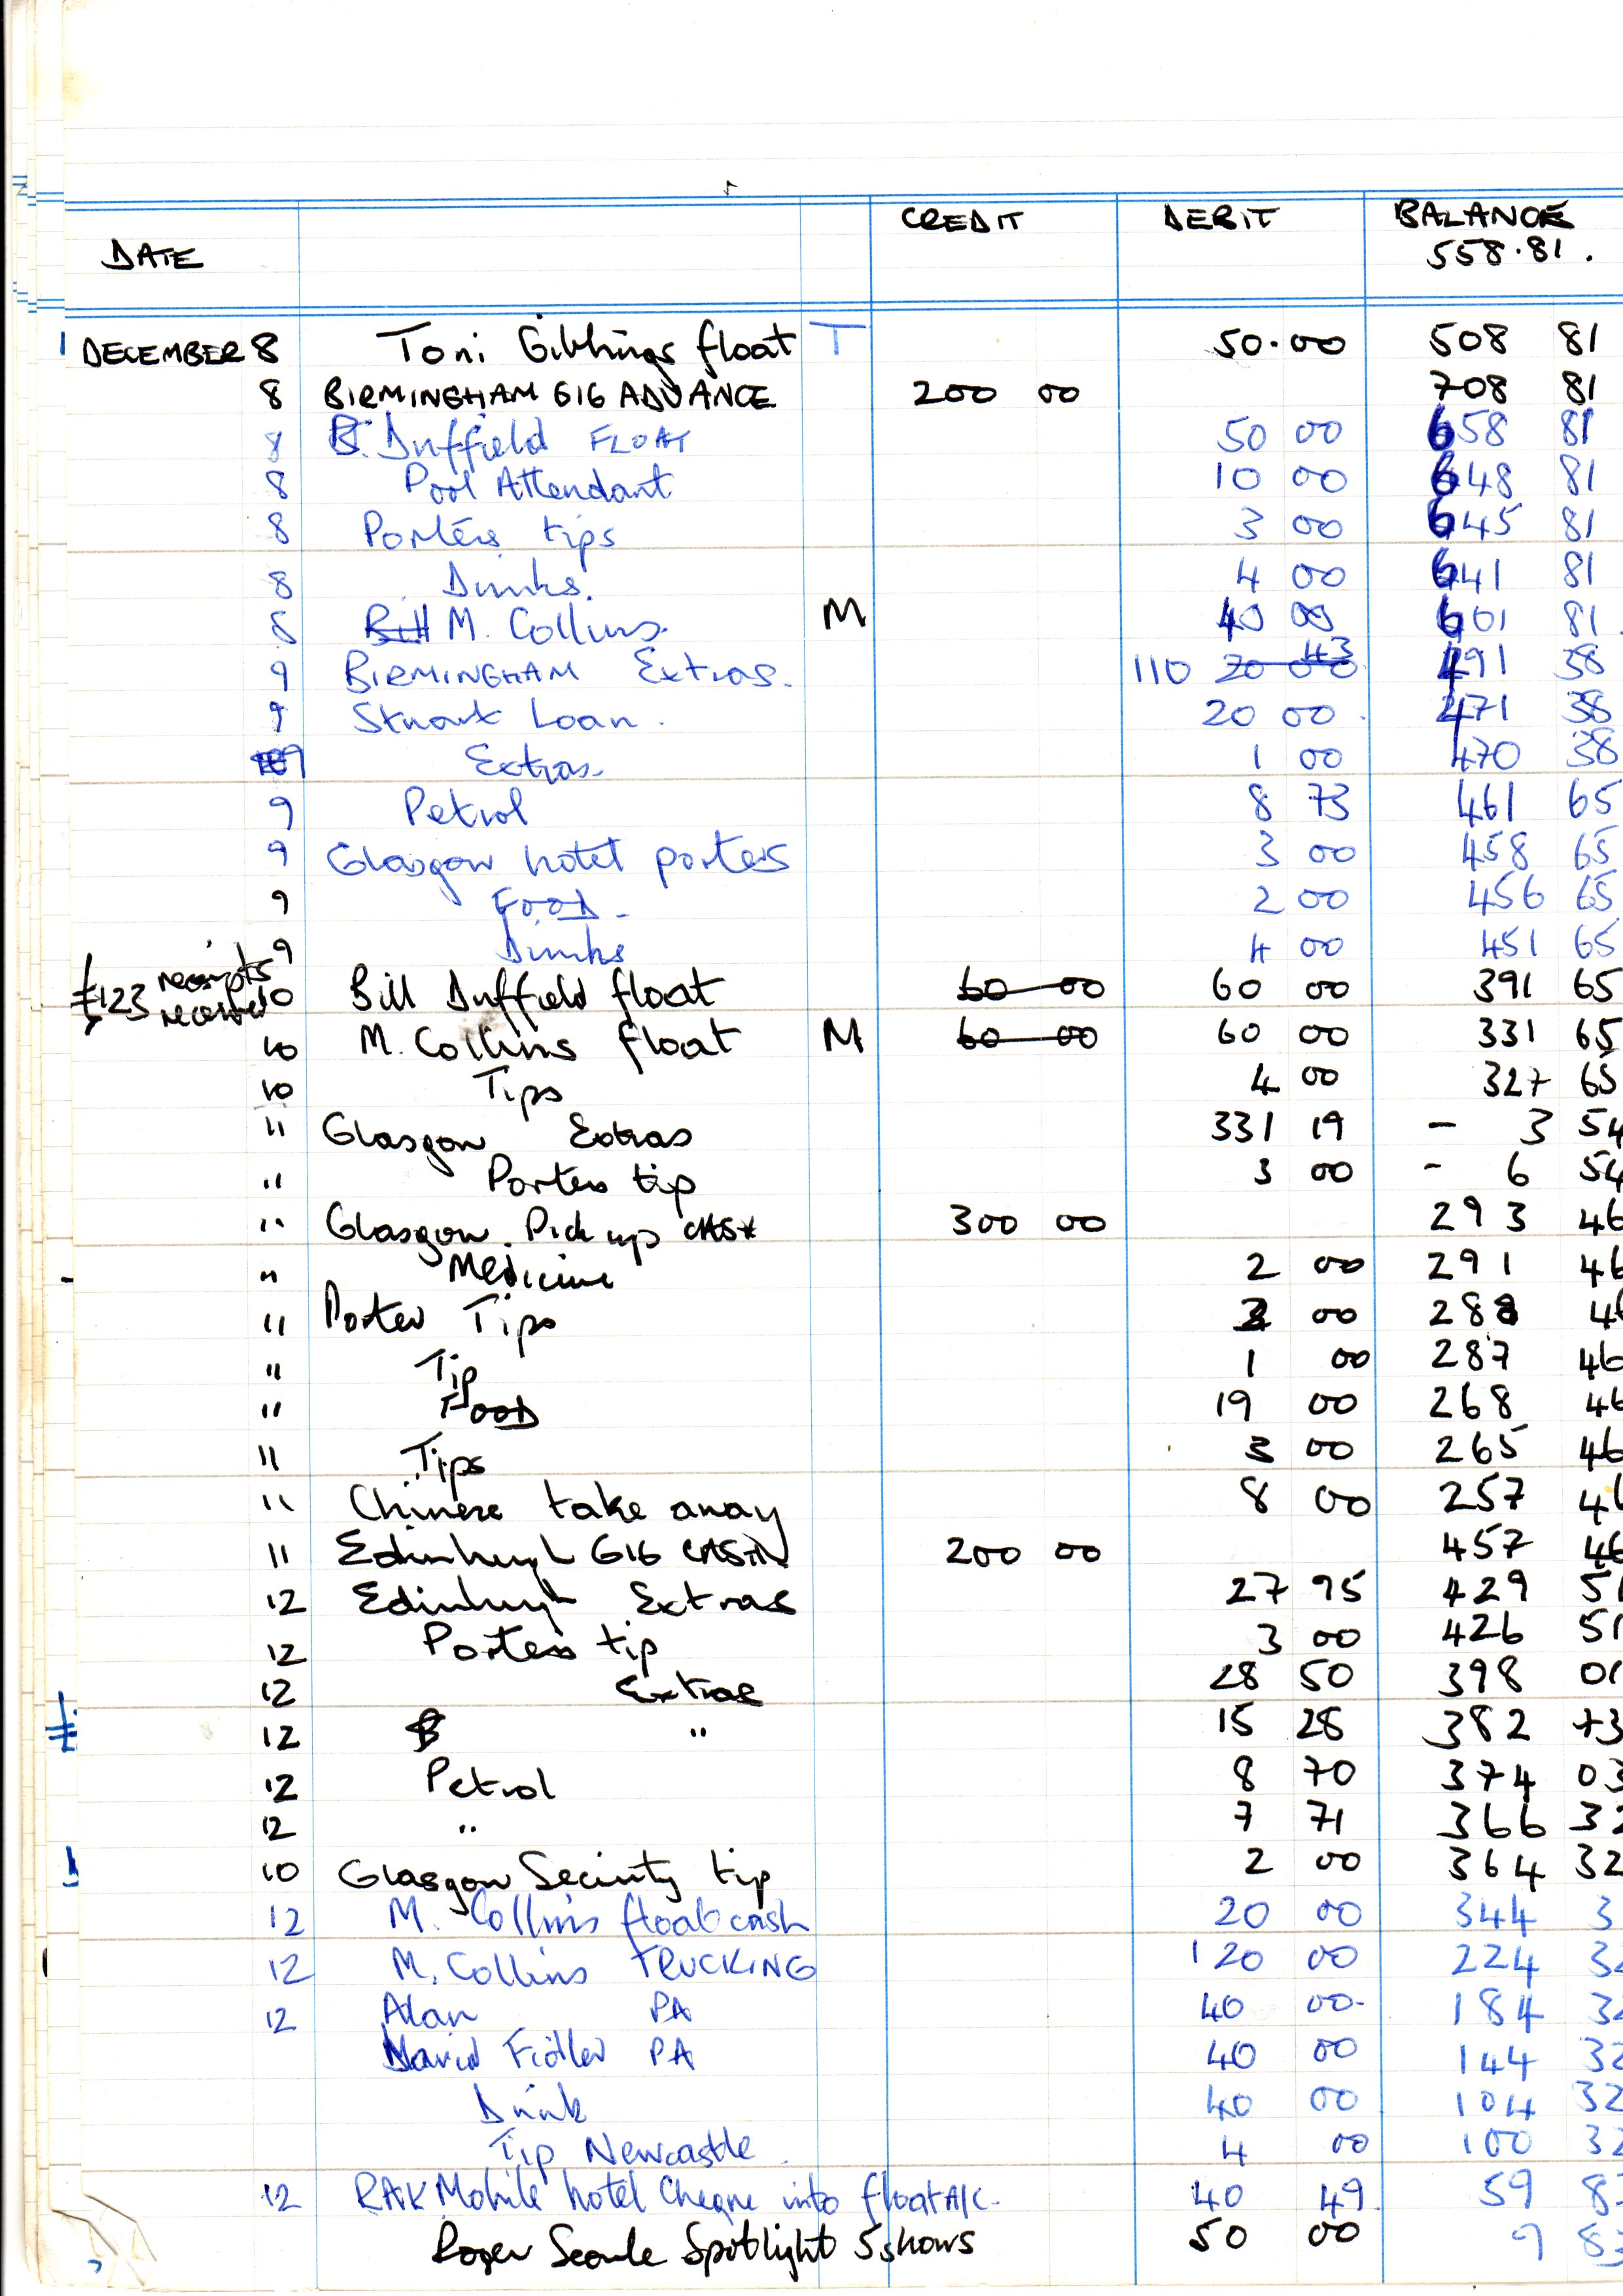 CREDIT DEBIT BALANCE
DATE 558.81.
DECEMBER 8 Toni Gibbings float T 50.00 508 81
8 BIRMINGHAM GIG ADVANCE 200 00 708 81
8 B. Duffield FLOAT 50 00 658 81
8 Pool Attendant 10 00 648 81
8 Porters tips 3 00 645 81
8 Drinks. 4 00 641 81
8 Bill M. Collins. M 40 00 601 81
9 BIRMINGHAM Extras. 110 20 00 43 491 38
9 Stuart Loan. 20 00. 471 38
9 Extras. 1 00 470 38
9 Petrol 8 73 461 65
9 Glasgow hotel porters 3 00 458 65
9 FOOD - 2 00 456 65
9 Drinks 4 00 451 65
£123 receipts received 10 Bill Duffield float 60 00 60 00 391 65
10 M. Collins float M 60 00 60 00 331 65
10 Tips 4 00 327 65
11 Glasgow Extras 331 19 - 3 54
" Porters tip 3 00 - 6 54
" Glasgow. Pick up CASH 300 00 293 46
" Medicine 2 00 291 46
11 Porter Tips 3 00 288 4
" Tip 1 00 287 46
" FOOD 19 00 268 46
11 Tips 3 00 265 46
" Chinese take away 8 00 257 4
11 Edinburgh GIG CASH 200 00 457 46
12 Edinburgh Extras 27 95 429 51
12 Porters tip 3 00 426 51
12 Extras 28 50 398 01
12 " 15 28 382 73
12 Petrol 8 70 374 03
12 " 7 71 366 32
10 Glasgow Security tip 2 00 364 32
12 M. Collins float cash 20 00 344 3
12 M. Collins TRUCKING 120 00 224 32
12 Alan PA 40 00- 184 32
David Fidler PA 40 00 144 32
Drink 40 00 104 32
Tip Newcastle. 4 00 100 32
12 RAK Mobile hotel Cheque into float A/C. 40 49. 59 8
Roger Searle Spotlight 5 shows 50 00 9 83